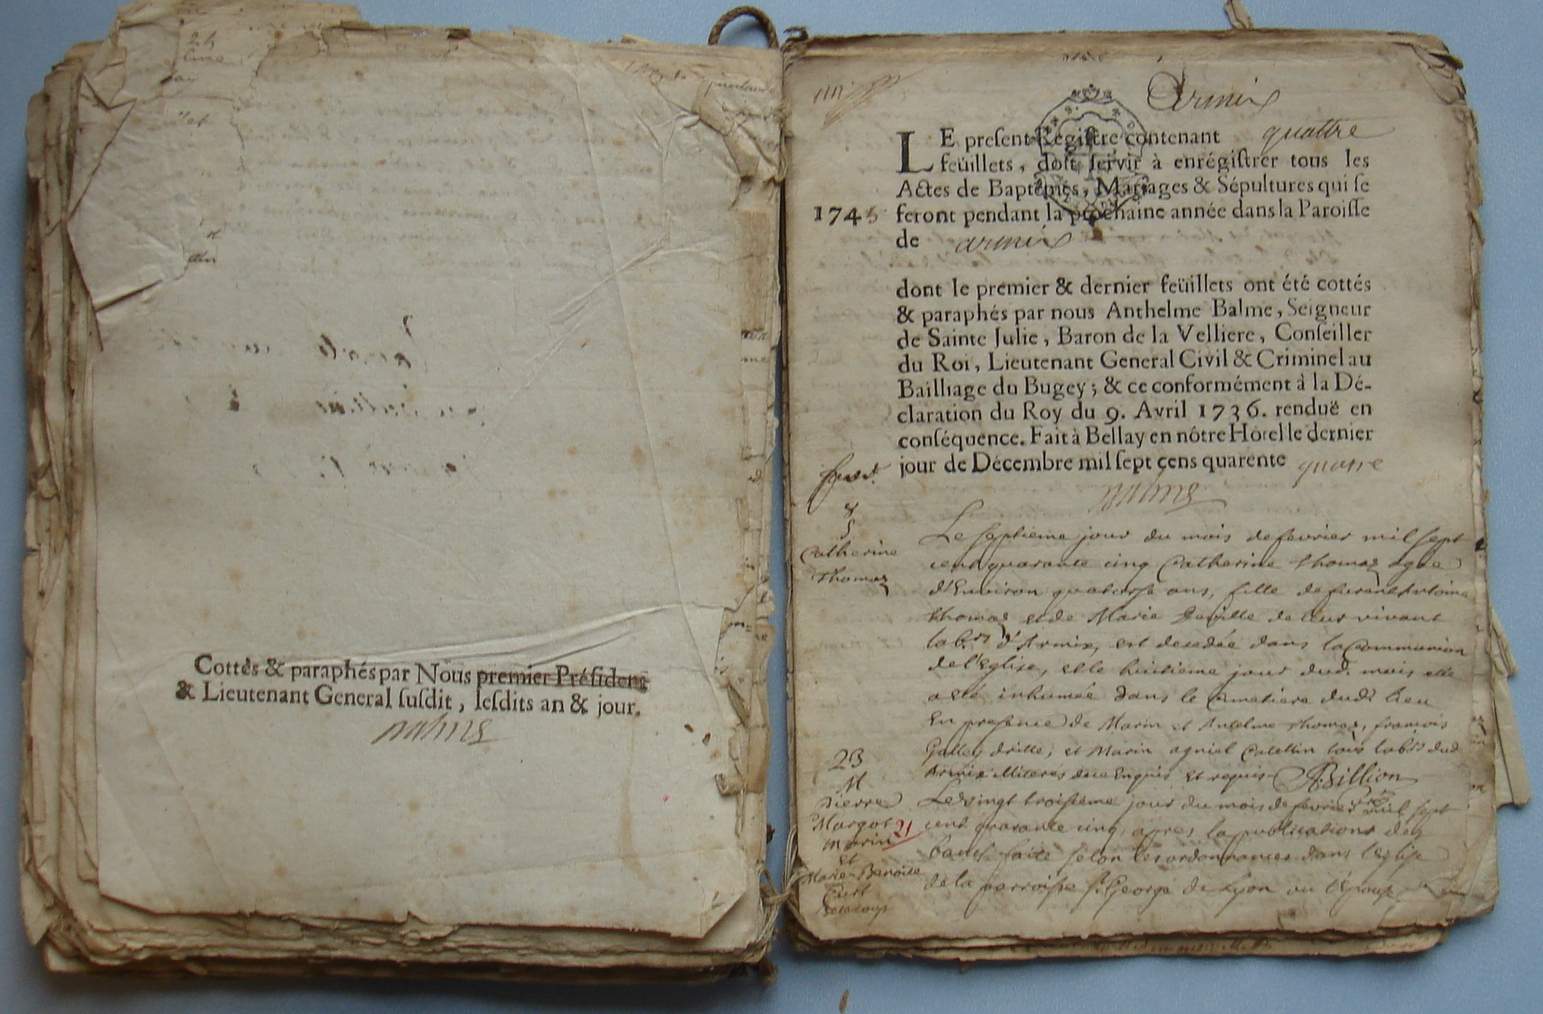 Cottés & paraphés par Nous premier Président
& Lieutenant General susdit, lesdits an & jour.
Balme
Armix
LE present Registre contenant quattre
feüillets, doit servir à enrégistrer tous les
Actes de Baptêmes, Mariages & Sépultures qui se
1745 feront pendant la prochaine année dans la Paroisse
de armix
dont le premier & dernier feüillets ont été cottés
& paraphés par nous Anthelme Balme, Seigneur
de Sainte Julie, Baron de la Velliere, Conseiller
du Roi, Lieutenant General Civil & Criminel au
Bailliage du Bugey; & ce conformément à la Dé-
claration du Roy du 9. Avril 1736. renduë en
conséquence. Fait à Bellay en nôtre Hôtel le dernier
jour de Décembre mil sept cens quarente quatre
Balme
8
S
Catherine
Thomaz
Le septieme jour du mois de fevrier mil sept
cent quarante cinq Catherine Thomaz agée
d'Environ quatorse ans, fille de
Thomaz et de Marie Deville de leur vivant
d'Armix, est decedée dans la Communion
de l'Eglise, et le huitieme jour dud. mois elle
a eté inhumée dans le cimetiere dud. lieu
En presence de Marin et Antelme Thomaz, françois
et Marin tous dud.
Armix Illiterés de ce Enquis et requis Billion
23
M
Pierre
Margot
Marin 21
Et
Marie Benoite
Le vingt troisieme jour du mois de fevrier mil sept
cent quarante cinq, apres la publications des
bancs faite selon les ordonnances dans l'Eglise
de la parroisse St George de Lyon ou l'Epoux